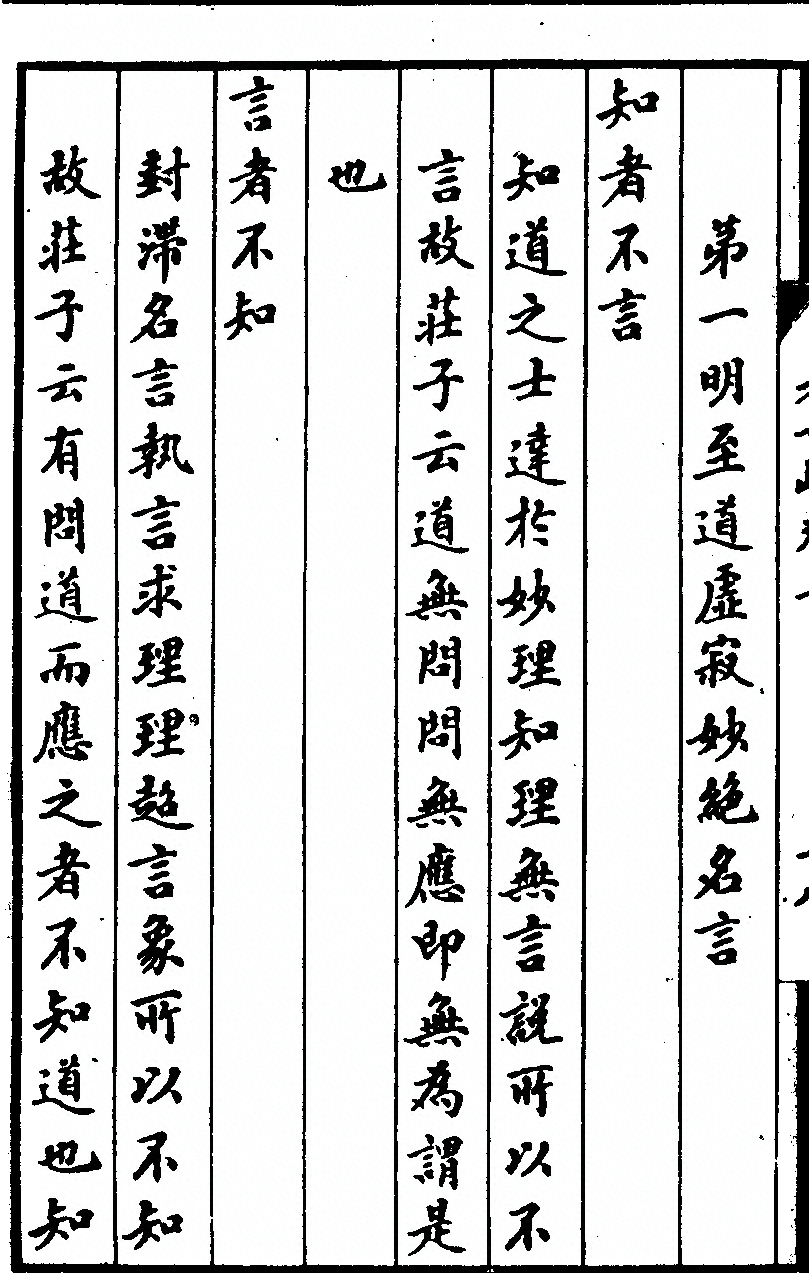 第一明至道虛寂妙絕名言
知者不言
知道之士達於妙理知理無言說所以不
言故莊子云道無問問無應即無為謂是
也
言者不知
封滯名言執言求理理超言象所以不知
故莊子云有問道而應之者不知道也知